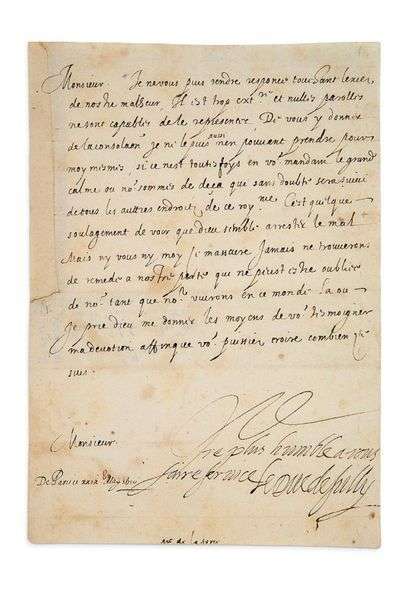 Monsieur Je ne vous puis rendre responce touchant lexces
de nostre malheur Il est trop ext^re et nulles parolles
ne sont capables de le representer De vous y donner
de la consolaōn je ne le puis n'en pouvant prendre pour
moy mesmes si ce nest toutesfoys en vo^s mandant le grand
calme ou no^s sommes de deca que sans doubte sera suivi
de tous les autres endroitz de ce roy^me. C'est quelque
soulagement de voir que dieu semble arrester le mal
Mais ny vous ny moy je masseure Jamais ne trouverons
de remede a nostre perte qui ne peust estre oubliee
de no^s tant que no^s vivrons en ce monde La ou
je prie dieu me donner les moyens de vo^s tesmoigner
ma devotion affin que vo^s puissiez croire combien je
suis.
Monsieur
Vre plus humble a vous
faire service
le Duc de Sully
De Paris ce may 1610